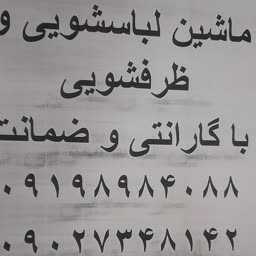 ماشین لباسشویی و
ظرفشویی
با گارانتی و ضمانت
۰۹۱۹۸۹۸۴۰۸۸
۰۹۰۲۷۳۴۸۱۴۲